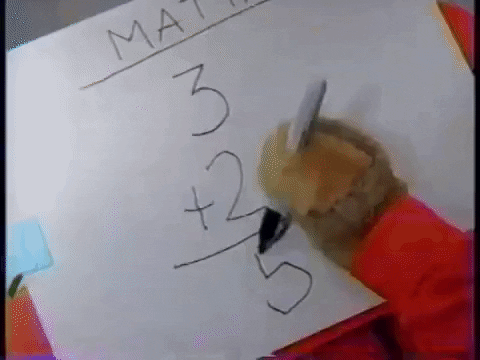 MATH
3
+2
5